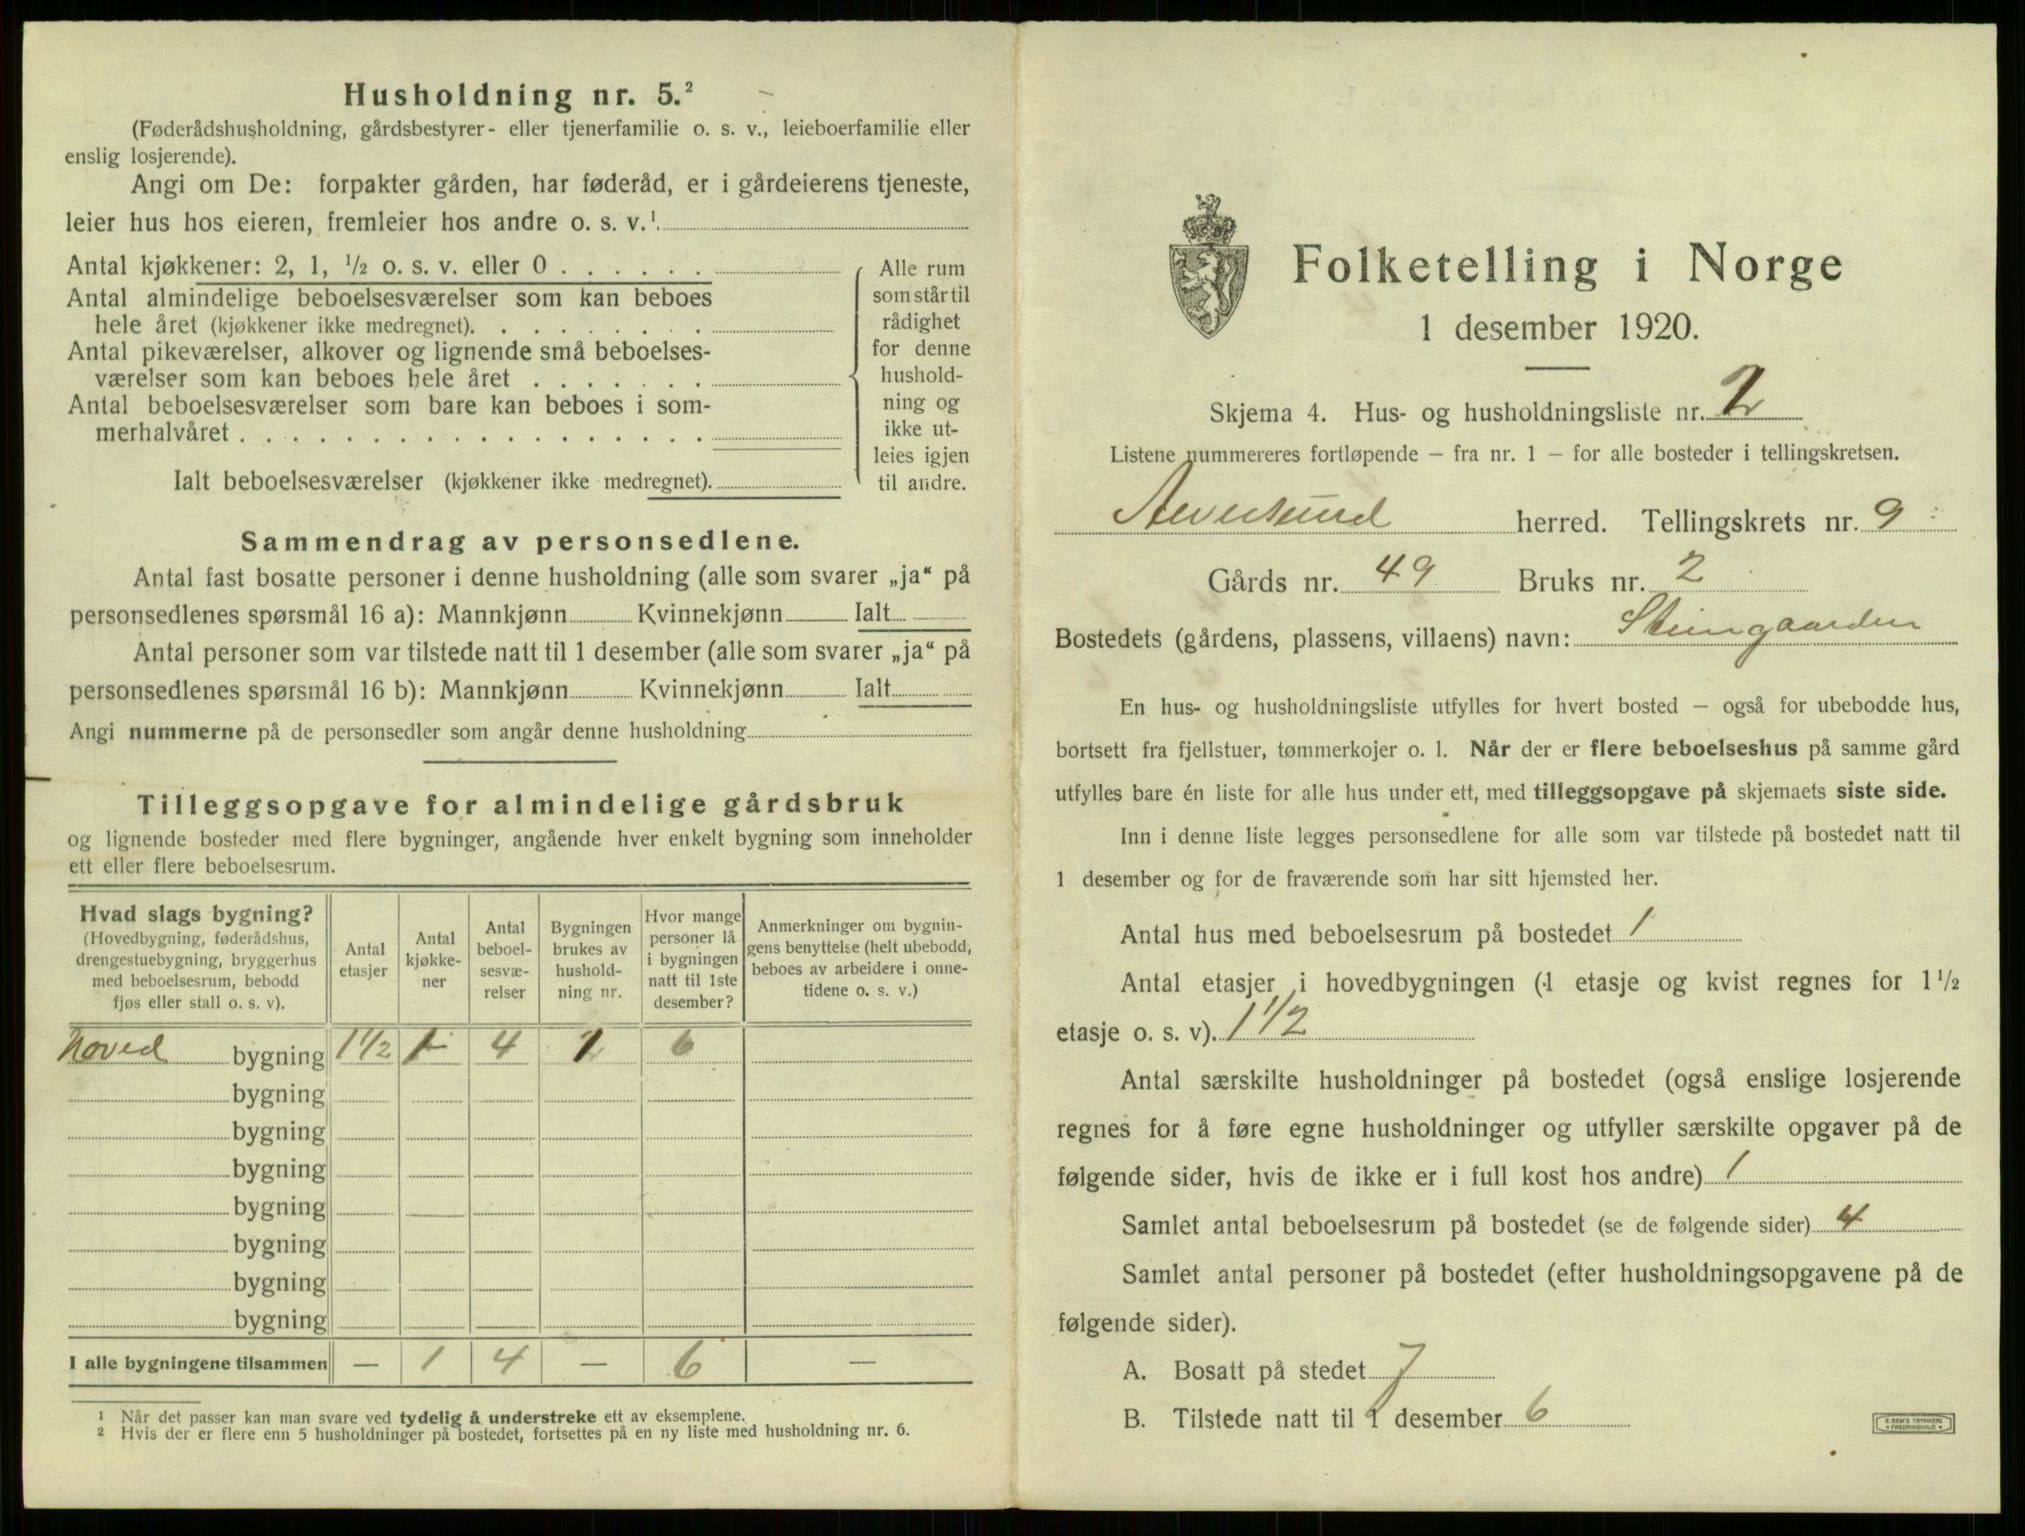 Husholdning nr. 5.²
(Føderådshusholdning, gårdsbestyrer- eller tjenerfamilie o. s. v., leieboerfamilie eller
enslig losjerende).
Angi om De: forpakter gården, har føderåd, er i gårdeierens tjeneste,
leier hus hos eieren, fremleier hos andre o. s. v.¹
Antal kjøkkener: 2, 1, ½ o. s. v. eller 0
Antal almindelige beboelsesværelser som kan beboes
hele året (kjøkkener ikke medregnet).
Antal pikeværelser, alkover og lignende små beboelses-
værelser som kan beboes hele året
Antal beboelsesværelser som bare kan beboes i som-
merhalvåret
Ialt beboelsesværelser (kjøkkener ikke medregnet).
Alle rum
som står til
rådighet
for denne
hushold-
ning og
ikke ut-
leies igjen
til andre.
Sammendrag av personsedlene.
Antal fast bosatte personer i denne husholdning (alle som svarer „ja“ på
personsedlenes spørsmål 16 a): Mannkjønn Kvinnekjønn Ialt
Antal personer som var tilstede natt til 1 desember (alle som svarer „ja“ på
personsedlenes spørsmål 16 b): Mannkjønn Kvinnekjønn Ialt
Angi nummerne på de personsedler som angår denne husholdning
Tilleggsopgave for almindelige gårdsbruk
og lignende bosteder med flere bygninger, angående hver enkelt bygning som inneholder
ett eller flere beboelsesrum.
Hvad slags bygning?
(Hovedbygning, føderådshus,
drengestuebygning, bryggerhus
med beboelsesrum, bebodd
fjøs eller stall o. s. v).
Antal
etasjer
Antal
kjøkke-
ner
Antal
beboel-
sesvæ-
relser
Bygningen
brukes av
hushold-
ning nr.
Hvor mange
personer lå
i bygningen
natt til 1ste
desember?
Anmerkninger om bygnin-
gens benyttelse (helt ubebodd,
beboes av arbeidere i onne-
tidene o. s. v.)
Hoved bygning 1½ 1 4 1 6
bygning
bygning
bygning
bygning
bygning
bygning
bygning
I alle bygningene tilsammen — 1 4 — 6 —
¹ Når det passer kan man svare ved tydelig å understreke ett av eksemplene.
² Hvis der er flere enn 5 husholdninger på bostedet, fortsettes på en ny liste med husholdning nr. 6.
Folketelling i Norge
1 desember 1920.
Skjema 4. Hus- og husholdningsliste nr. 2
Listene nummereres fortløpende – fra nr. 1 – for alle bosteder i tellingskretsen.
Alversund herred. Tellingskrets nr. 9
Gårds nr. 49 Bruks nr. 2
Bostedets (gårdens, plassens, villaens) navn: Steingaarden
En hus- og husholdningsliste utfylles for hvert bosted – også for ubebodde hus,
bortsett fra fjellstuer, tømmerkojer o. l. Når der er flere beboelseshus på samme gård
utfylles bare én liste for alle hus under ett, med tilleggsopgave på skjemaets siste side.
Inn i denne liste legges personsedlene for alle som var tilstede på bostedet natt til
1 desember og for de fraværende som har sitt hjemsted her.
Antal hus med beboelsesrum på bostedet 1
Antal etasjer i hovedbygningen (1 etasje og kvist regnes for 1½
etasje o. s. v). 1½
Antal særskilte husholdninger på bostedet (også enslige losjerende
regnes for å føre egne husholdninger og utfyller særskilte opgaver på de
følgende sider, hvis de ikke er i full kost hos andre) 1
Samlet antal beboelsesrum på bostedet (se de følgende sider) 4
Samlet antal personer på bostedet (efter husholdningsopgavene på de
følgende sider).
A. Bosatt på stedet 7
B. Tilstede natt til 1 desember 6
E. SEM'S TRYKKERI
FREDRIKSHALD